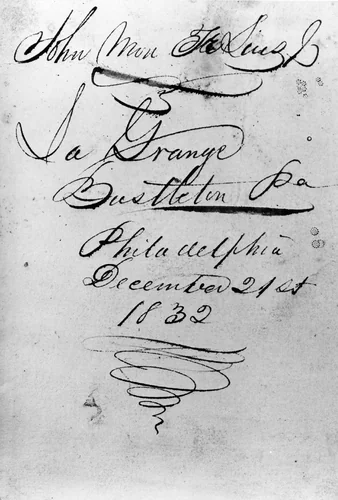 John Mon
La Grange
Bustleton Pa
Philadelphia
December 21st
1832